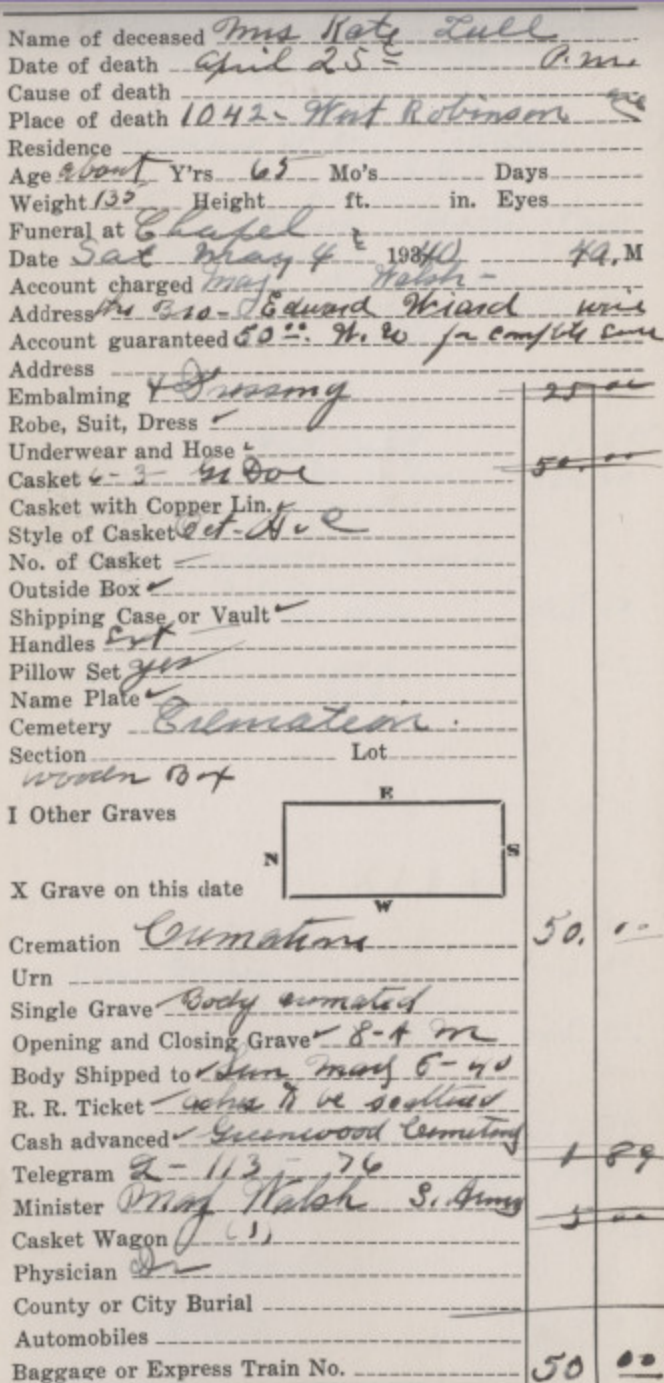 Name of deceased Mrs Kate Lull
Date of death April 25 P.m.
Cause of death
Place of death 1042- West Robinson
Residence
Age about Y'rs 65 Mo's Days
Weight 135 Height ft. in. Eyes
Funeral at Chapel
Date Sat May 4 1940 M
Account charged Maj Walsh-
Address Bro- Edward Wiard wire
Account guaranteed 50.00 for complete
Address
Embalming & Dressing 25 00
Robe, Suit, Dress ✓
Underwear and Hose
Casket 6-3 Doe 50.00
Casket with Copper Lin.
Style of Casket Oct-
No. of Casket
Outside Box ✓
Shipping Case or Vault ✓
Handles Ext
Pillow Set yes
Name Plate ✓
Cemetery Cremation.
Section Lot
wooden Box
E
I Other Graves
N S
X Grave on this date
W
Cremation Cremation 50. 00
Urn
Single Grave Body cremated
Opening and Closing Grave ✓ 8-A m
Body Shipped to ✓ Sun May 5-40
R. R. Ticket ashes to be scattered
Cash advanced ✓ Greenwood Cemetery
Telegram 2-113-76 1 89
Minister Maj Walsh S. Army 5 00
Casket Wagon (1)
Physician Dr
County or City Burial
Automobiles
Baggage or Express Train No. 50 00